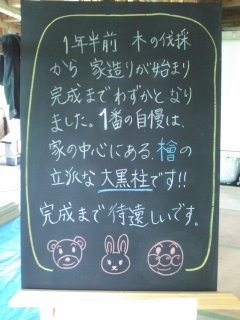 1年半前 木の伐採
から 家造りが始まり
完成までわずかとなり
ました。1番の自慢は、
家の中心にある、檜の
立派な大黒柱です!!
完成まで待遠しいです。